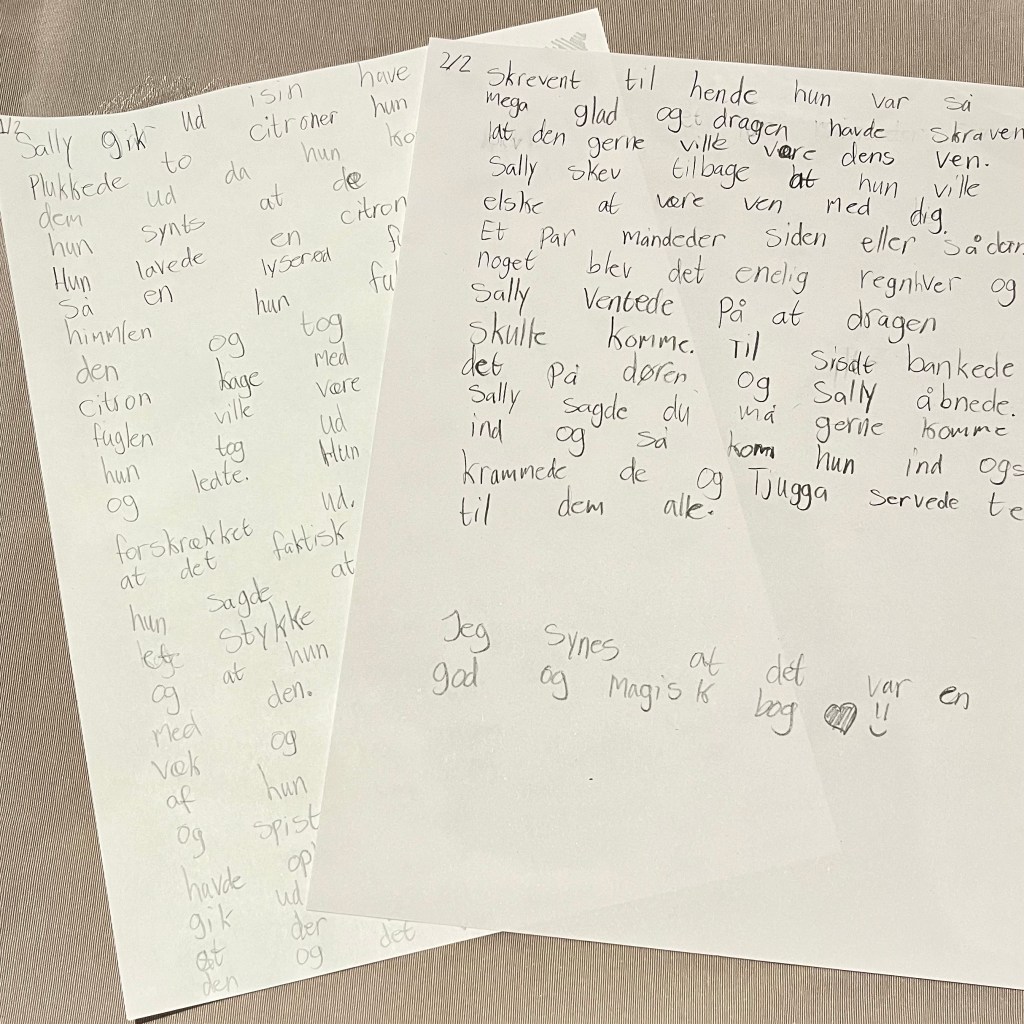 1/2
Sally gik ud i sin have
Plukkede to citroner hun
dem ud da hun ko
hun synts at de
Hun lavede en citron
så en lyserød fu
himmlen hun ful
den og tog
citron kage med
fuglen ville være
hun tog ud
og ledte. Hun
forskrækket ud.
at det faktisk
hun sagde at
stykke
og at hun
med den.
væk og
af hun
og spist
havde op
gik ud
at der det
den og
2/2
Skrevent til hende hun var så
mega glad og dragen havde skraven
at den gerne ville være dens ven.
Sally skev tilbage at hun ville
elske at være ven med dig.
Et Par måndeder siden eller sådan
noget blev det enelig regnhver og
Sally Ventede På at dragen
skulle komme. Til sisdt bankede
det På døren og Sally åbnede.
Sally sagde du må gerne komme
ind og så kom hun ind ogs
krammede de og Tjugga servede te
til dem alle.
Jeg synes at det var en
god og Magisk bog ♥ !!